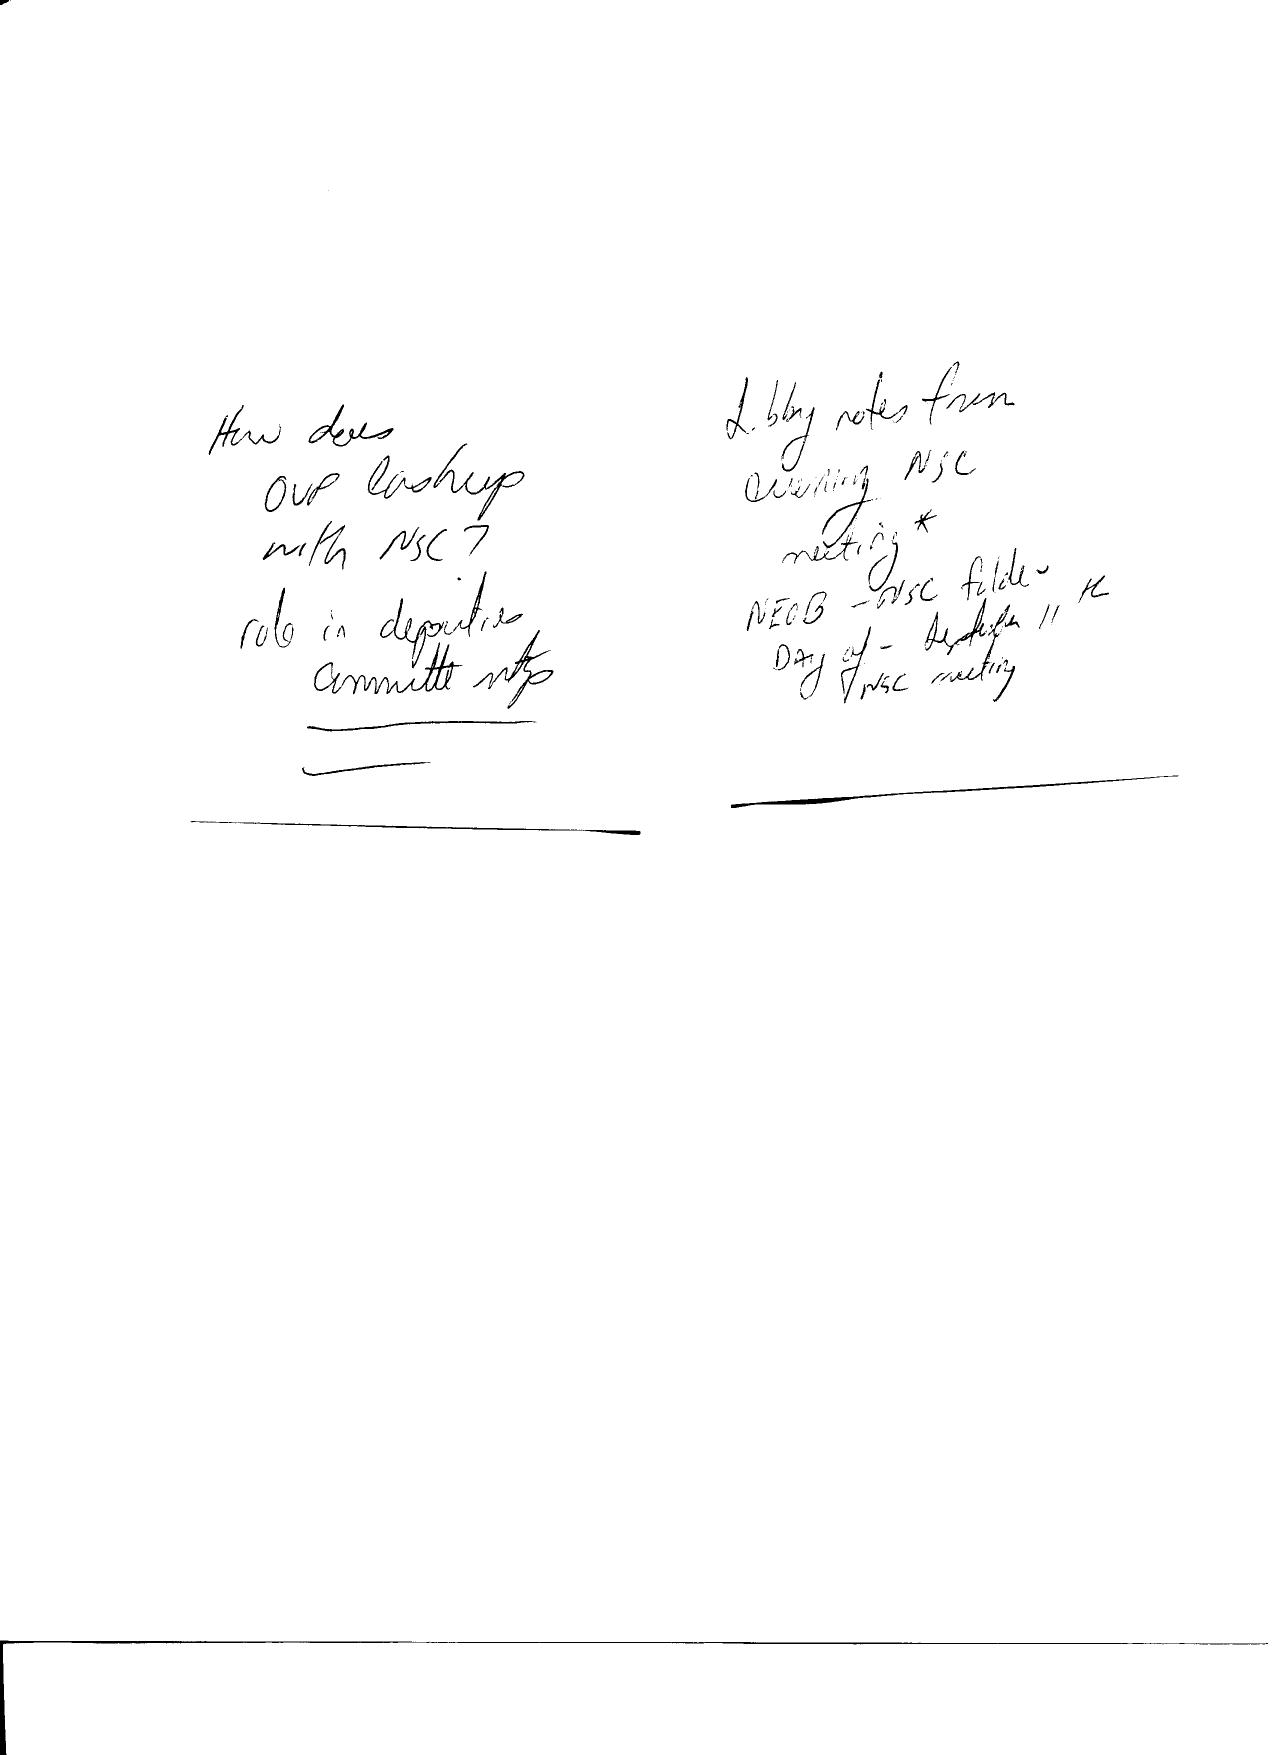 How does
OVP lashup
with NSC?
role in deputies
committe mtgs
Libby notes from
evening NSC
meeting*
NEOB - NSC folder
Day of - September 11
NSC meeting